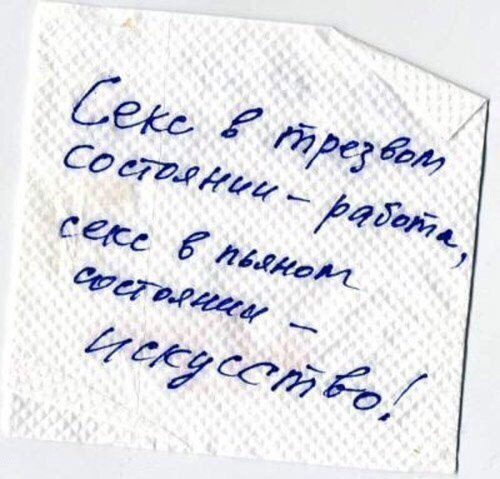 Секс в трезвом
состоянии - работа,
секс в пьяном
состоянии -
искусство!